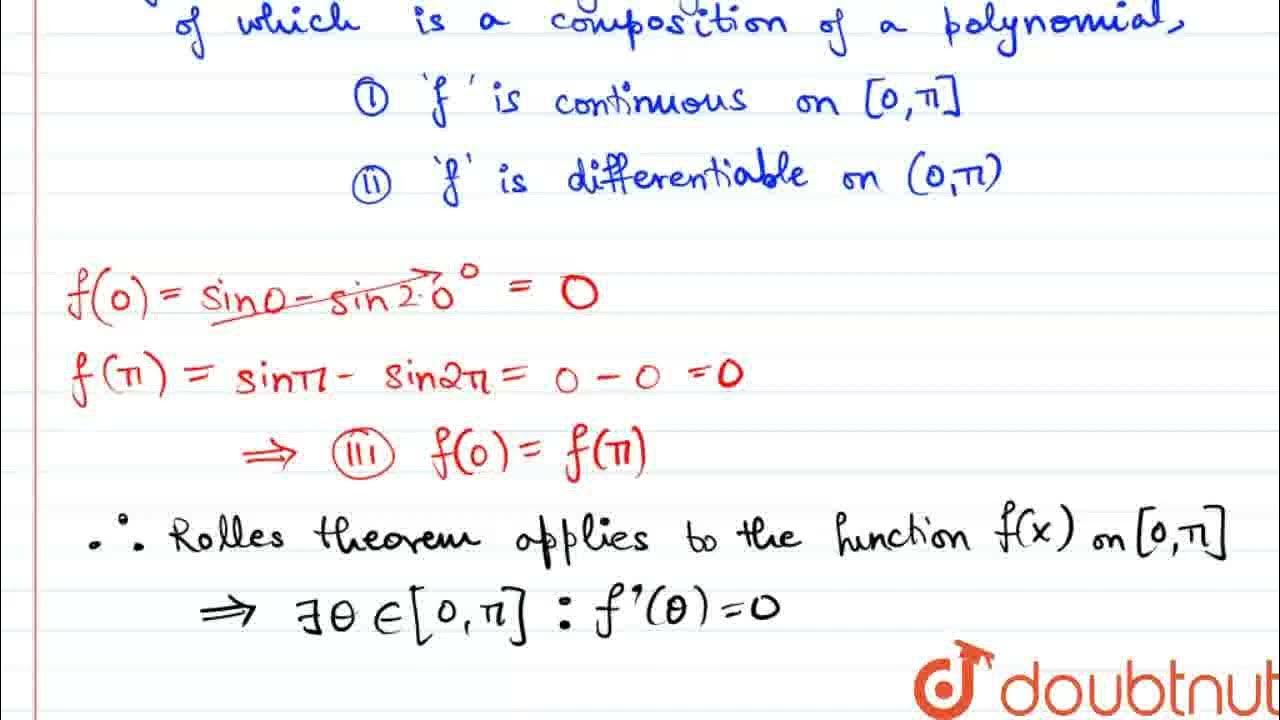 of which is a composition of a polynomial,
(i) 'f' is continuous on [0,π]
(ii) 'f' is differentiable on (0,π)
f(0) = sin0 - sin2·0 0 = 0
f(π) = sinπ - sin2π = 0 - 0 = 0
⇒ (iii) f(0) = f(π)
∴ Rolles theorem applies to the function f(x) on [0,π]
⇒ ∃θ ∈ [0,π] : f'(θ) = 0
doubtnut